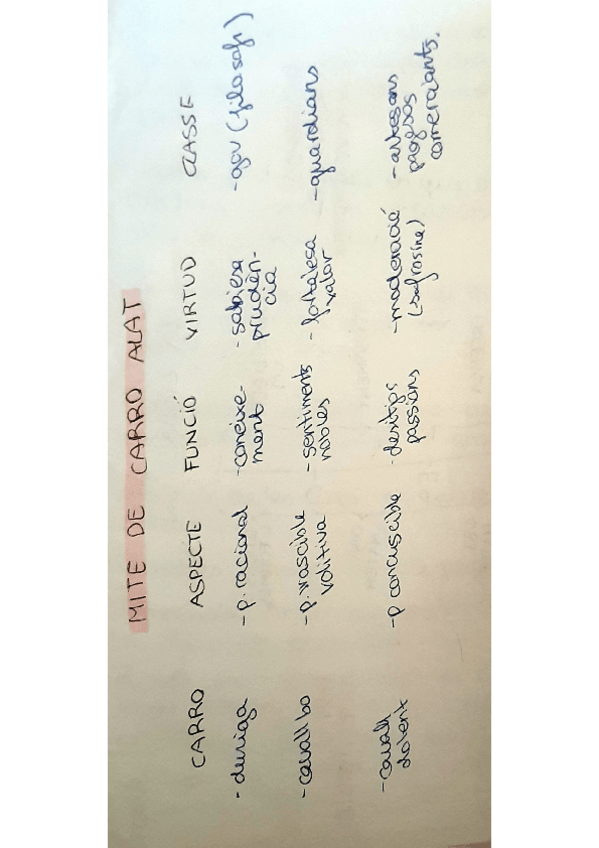 MITE DE CARRO ALAT
CARRO ASPECTE FUNCIÓ VIRTUD CLASSE
- auriga - p. racional - coneixe- - sabiesa - gov (filosofs)
ment prudèn-
cia
- cavall bo - p. irascible - sentiments - fortalesa - guardians
volitiva nobles valor
- cavall - p concuscible - desitjos - moderació - artesans
dolent passions (sofrosine) pagesos
comerciants.